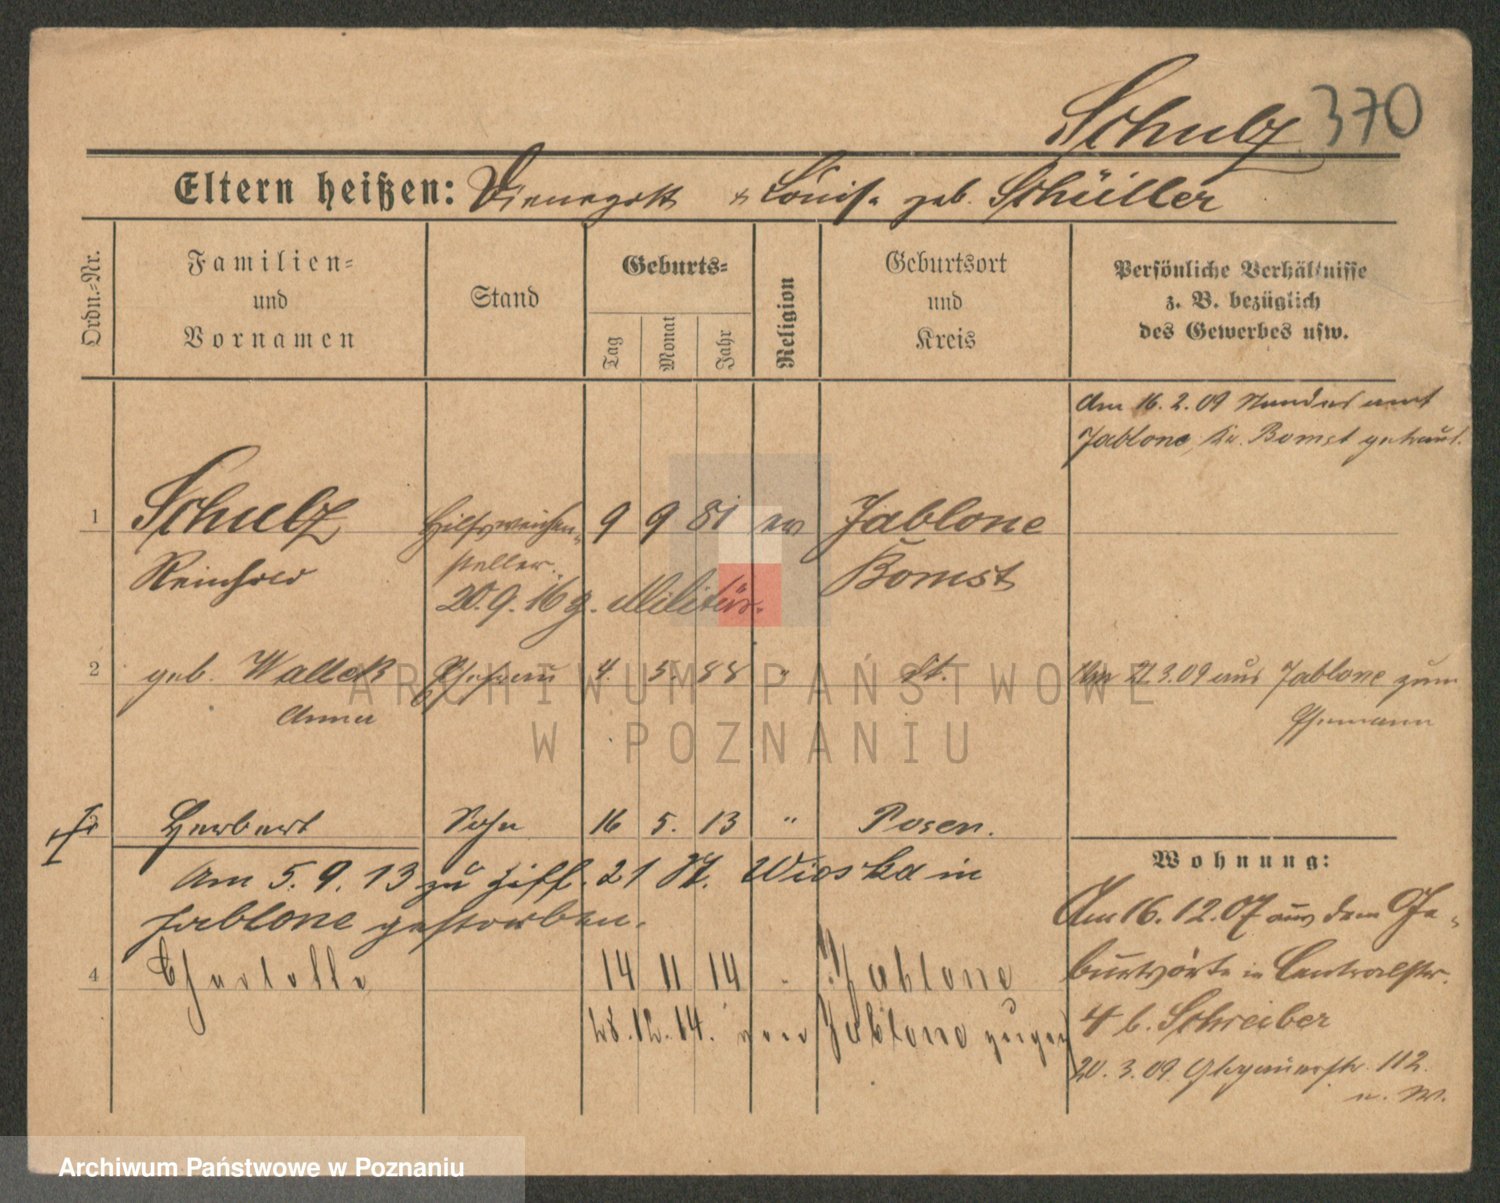 Schulz 370
Eltern heißen: Dienegott & Louise geb. Schüller
Ordn.-Nr.
Familien-
und
Vornamen
Stand
Geburts-
Tag
Monat
Jahr
Religion
Geburtsort
und
Kreis
Persönliche Verhältnisse
z. B. bezüglich
des Gewerbes usw.
Am 16.2.09 Standesamt
Jablone, Kr. Bomst getraut.
1 Schulz Hilfsweichen- 9 9 81 ev Jablone
Reinhold steller. Bomst
20.9.16 z. Militär.
2 geb. Walleck Ehefrau 4. 5. 88 " dt. Am 21.3.09 aus Jablone zum
Anna Ehemann
3 Herbert Sohn 16 5. 13 " Posen.
Am 5.9.13 zu Ziff. 21 St. Wioska in
Jablone gestorben.
4 Charlotte 14 11 14 " Jablone
28.12.14. von Jablone zugez
Wohnung:
Am 16.12.07 aus dem Ge-
burtsorte in Centralstr.
4 b. Schreiber
20.3.09. Glogauerstr. 112.
ARCHIWUM PAŃSTWOWE
W POZNANIU
Archiwum Państwowe w Poznaniu